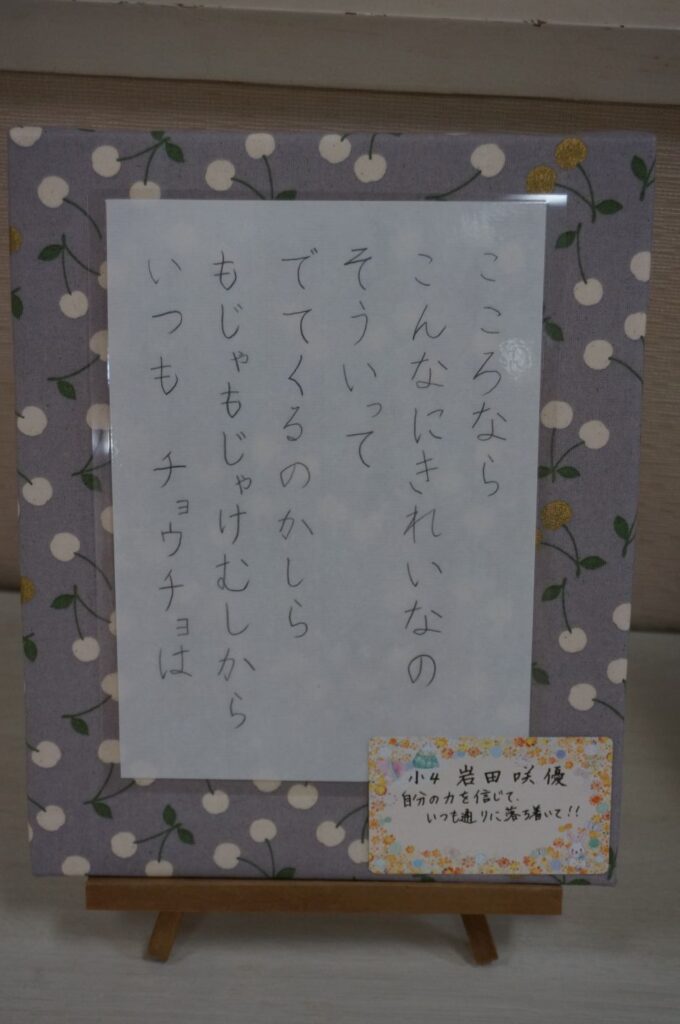 こころなら
こんなにきれいなの
そういって
でてくるのかしら
もじゃもじゃけむしから
いつも チョウチョは
小4 岩田咲優
自分の力を信じて、
いつも通りに落ち着いて!!